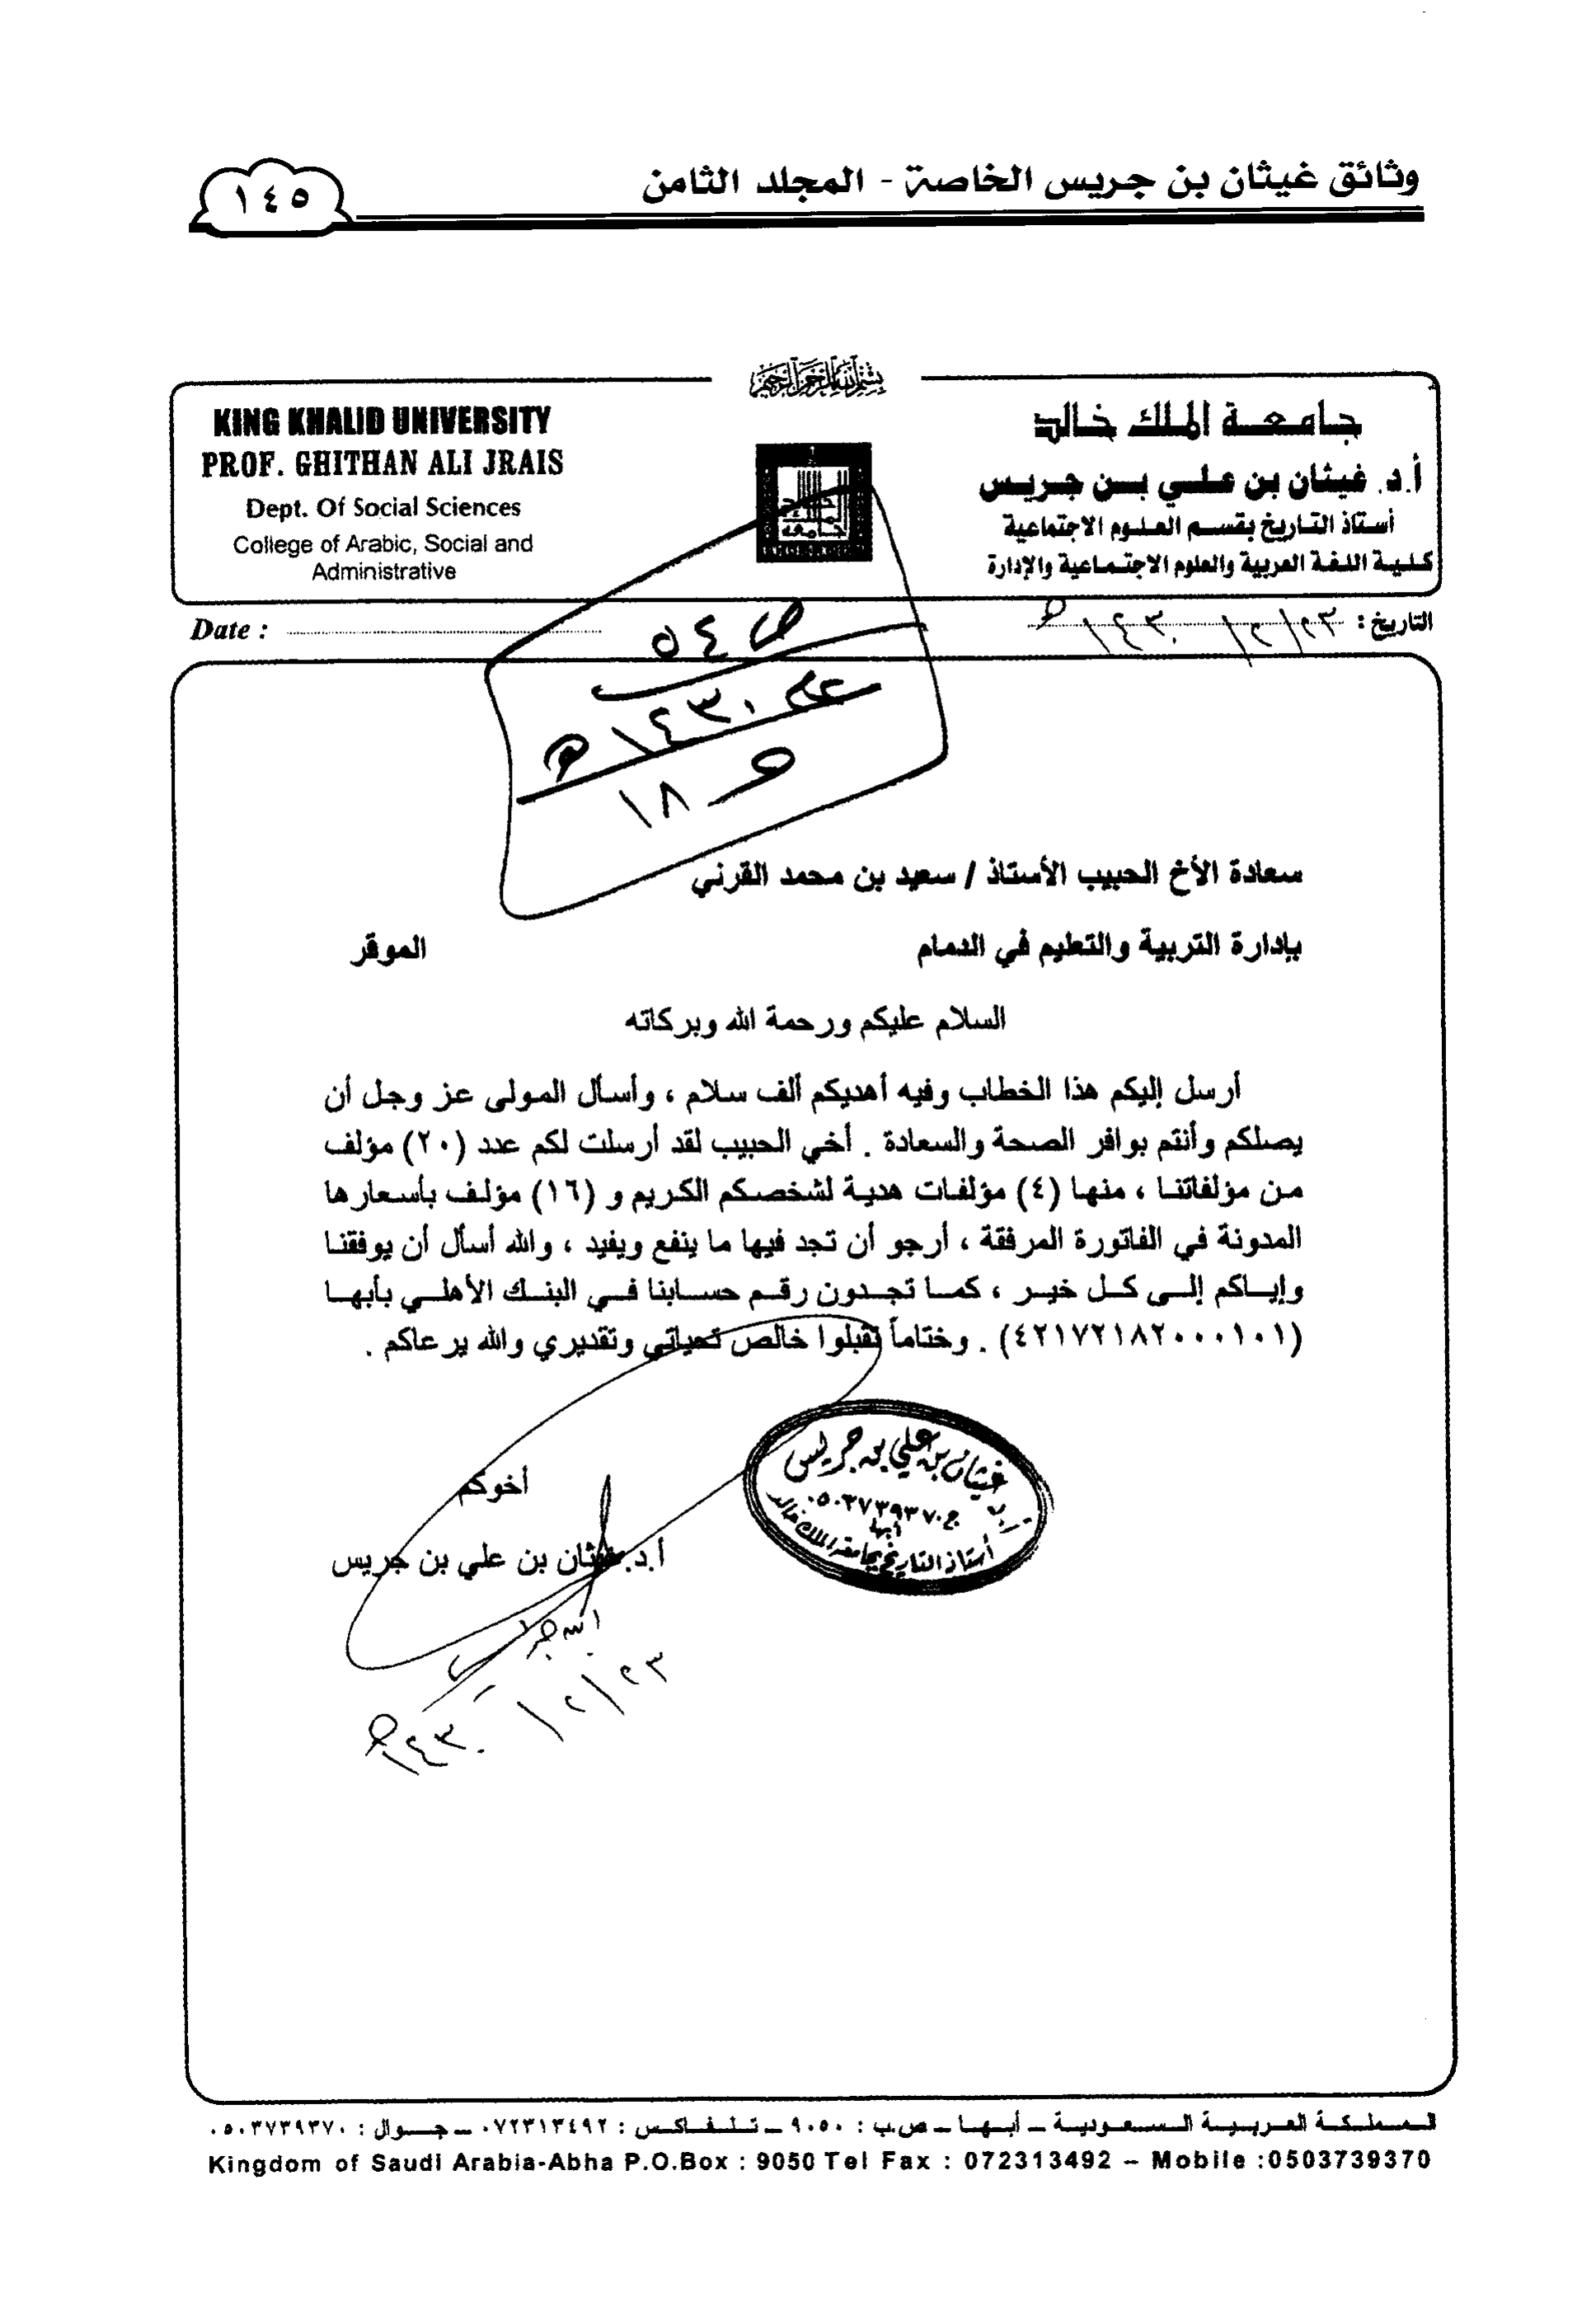 وثائق غيثان بن جريس الخاصة - المجلد الثامن
١٤٥
بسم الله الرحمن الرحيم
جامعة الملك خالد
أ.د. غيثان بن علي بن جريس
أستاذ التاريخ بقسم العلوم الاجتماعية
كلية اللغة العربية والعلوم الاجتماعية والإدارة
KING KHALID UNIVERSITY
PROF. GHITHAN ALI JRAIS
Dept. Of Social Sciences
College of Arabic, Social and
Administrative
التاريخ : ٢٣/٢/١٤٣٠هـ
Date :
ص ٥٤
١٤٣٠هـ
١٨
سعادة الأخ الحبيب الأستاذ / سعيد بن محمد القرني
بإدارة التربية والتعليم في الدمام الموقر
السلام عليكم ورحمة الله وبركاته
أرسل إليكم هذا الخطاب وفيه أهديكم ألف سلام ، وأسأل المولى عز وجل أن
يصلكم وأنتم بوافر الصحة والسعادة . أخي الحبيب لقد أرسلت لكم عدد (٢٠) مؤلف
من مؤلفاتنا ، منها (٤) مؤلفات هدية لشخصكم الكريم و (١٦) مؤلف بأسعارها
المدونة في الفاتورة المرفقة ، أرجو أن تجد فيها ما ينفع ويفيد ، والله أسأل أن يوفقنا
وإياكم إلى كل خير ، كما تجدون رقم حسابنا في البنك الأهلي بأبها
(٤٢١٧٢١٨٢٠٠٠١٠١) . وختاماً تقبلوا خالص تحياتي وتقديري والله يرعاكم .
أخوكم
أ.د. غيثان بن علي بن جريس
ابن جريس
٢٣/٢/١٤٣٠هـ
أ.د. غيثان بن علي بن جريس
ج ٠٥٠٣٧٣٩٣٧٠
أبها
أستاذ التاريخ بجامعة الملك خالد
المملكة العربية السعودية – أبها – ص.ب : ٩٠٥٠ – تلفاكس : ٠٧٢٣١٣٤٩٢ – جوال : ٠٥٠٣٧٣٩٣٧٠
Kingdom of Saudi Arabia-Abha P.O.Box : 9050 Tel Fax : 072313492 – Mobile :0503739370